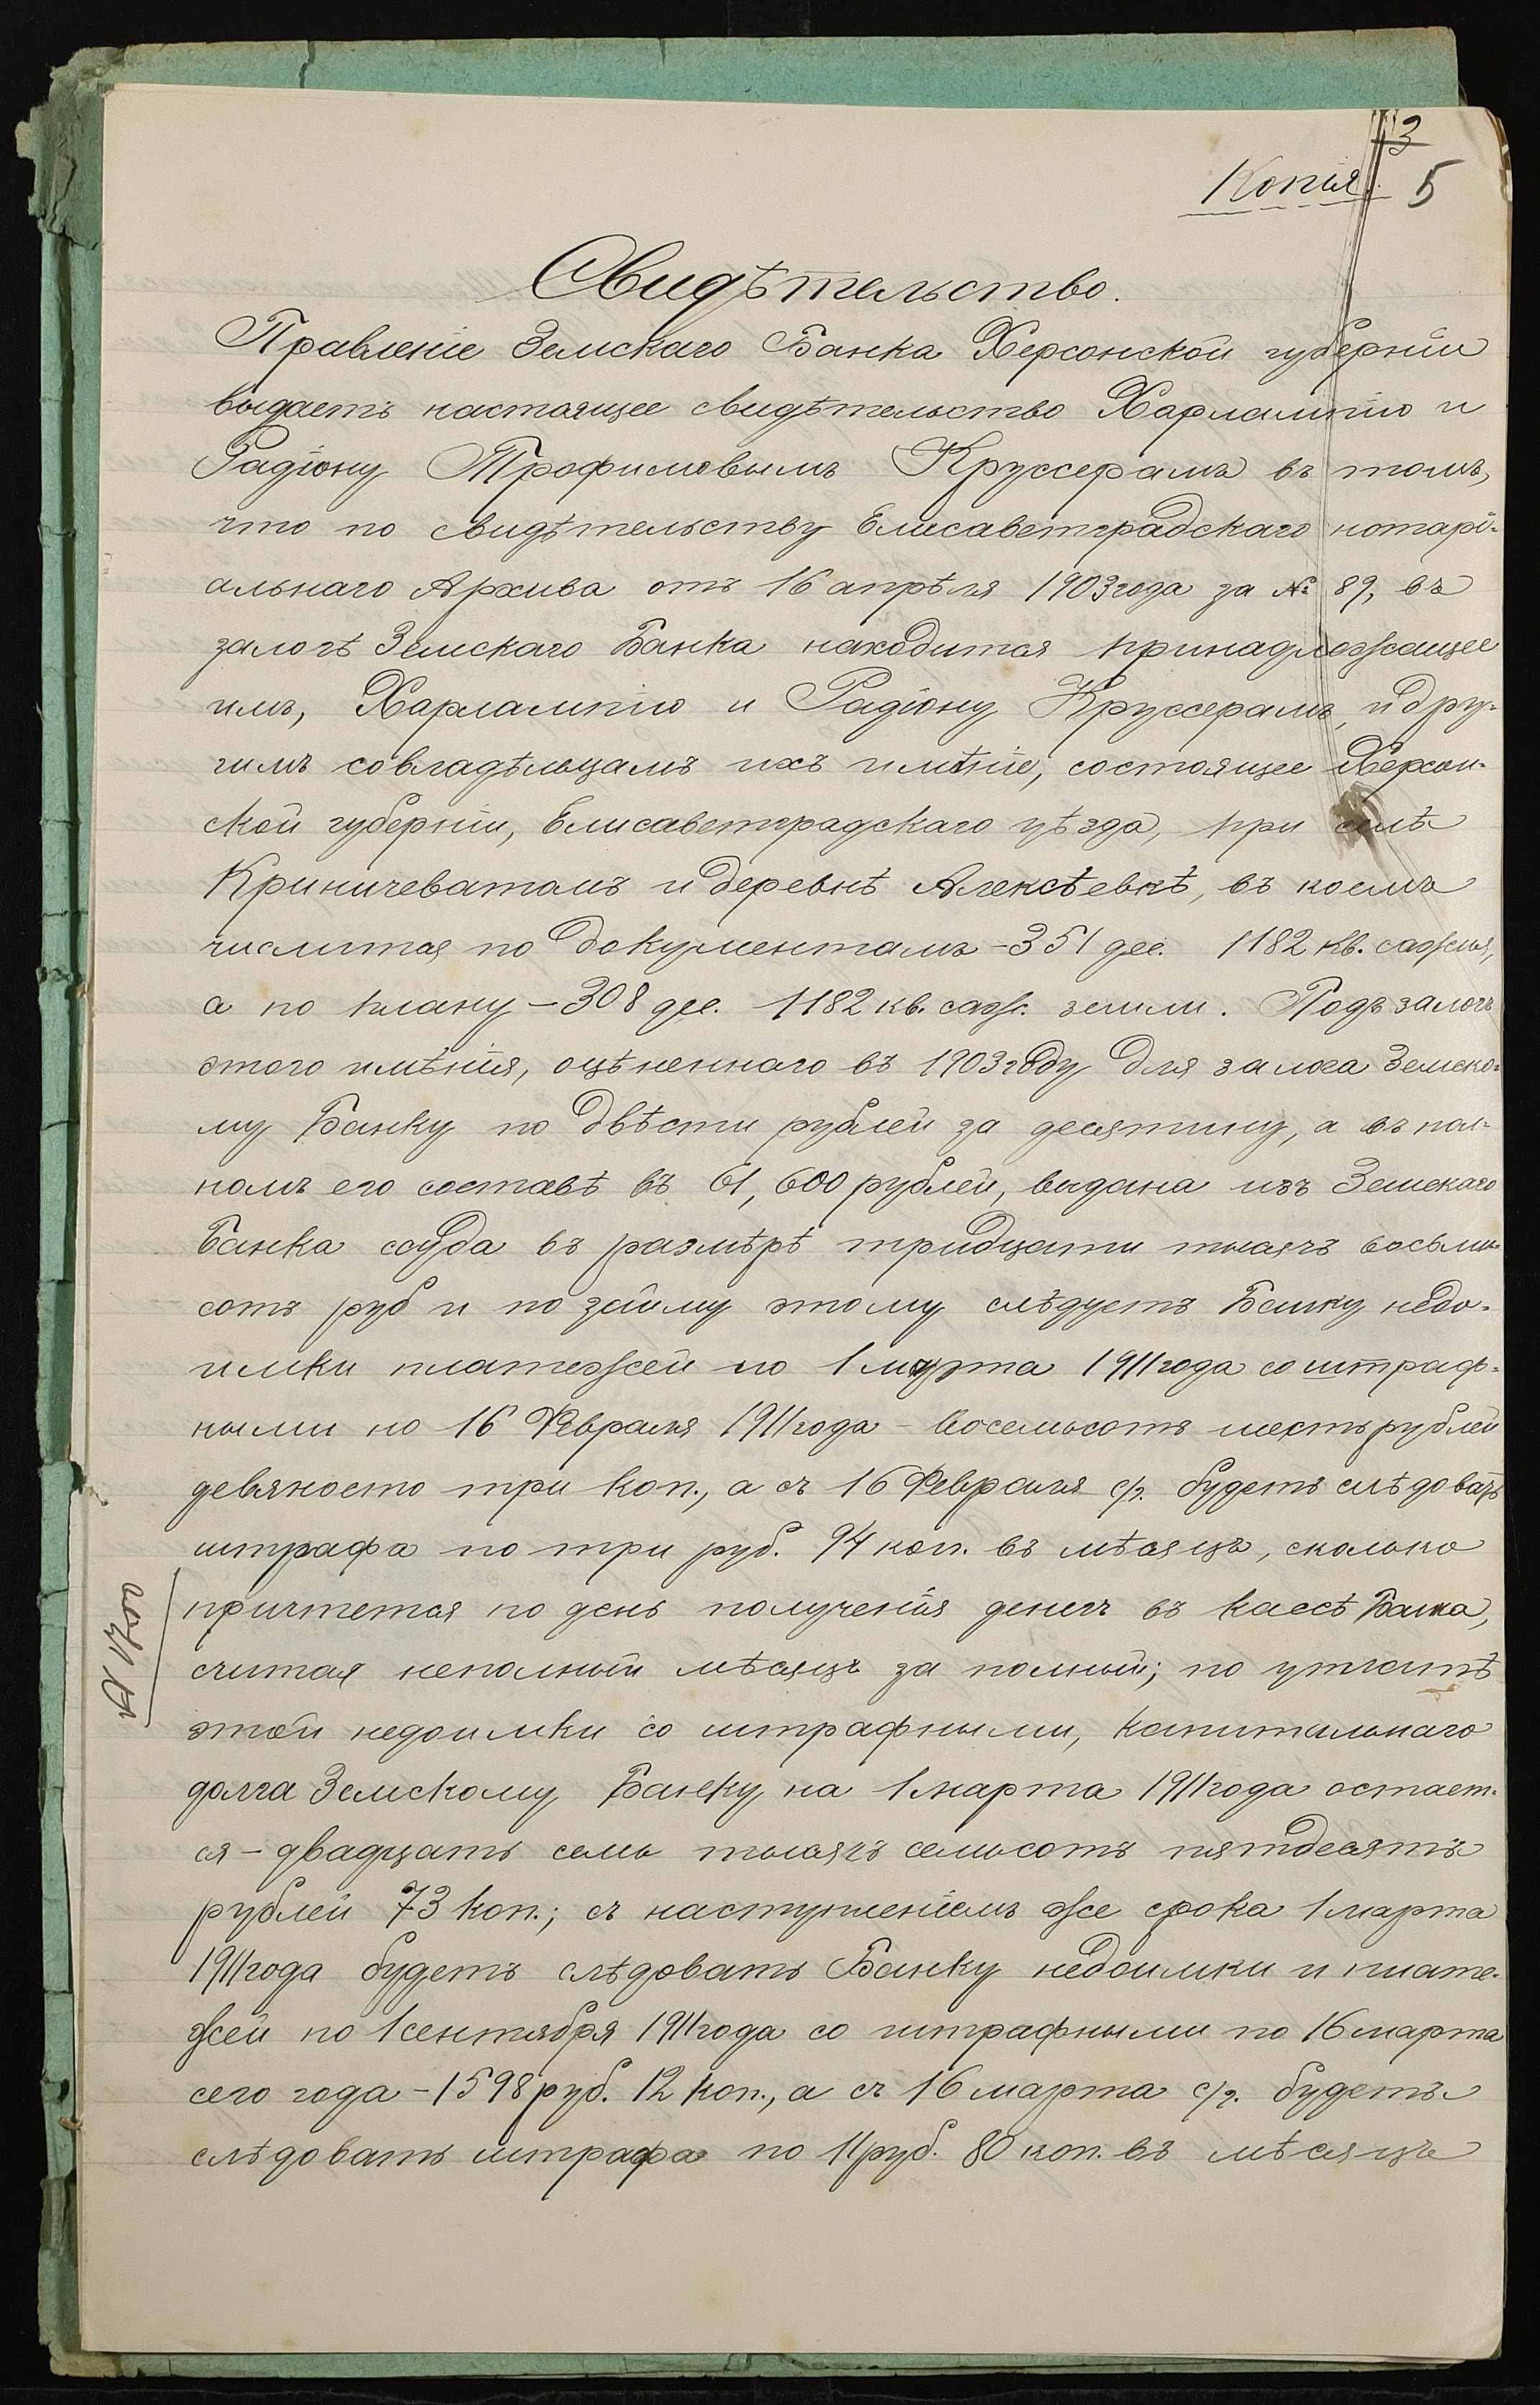 3
Копія. 5
Свидѣтельство.
Правленіе Земскаго Банка Херсонской губерніи
выдаетъ настоящее свидѣтельство Харлампію и
Радіону Трофимовымъ Круссерамъ въ томъ,
что по свидѣтельству Елисаветградскаго нотарі-
альнаго Архива отъ 16 апрѣля 1903 года за № 89, въ
залогѣ Земскаго Банка находится принадлежащее
имъ, Харлампію и Радіону Круссерамъ, и дру-
гимъ совладѣльцамъ ихъ имѣніе, состоящее Херсон-
ской губерніи, Елисаветградскаго уѣзда, при селѣ
Криничеватомъ и деревнѣ Алексѣевкѣ, въ коемъ
числится по документамъ - 351 дес. 1182 кв. сажня,
а по плану - 308 дес. 1182 кв. саж. земли. Подъ залогъ
этого имѣнія, оцѣненнаго въ 1903 году для залога Земско-
му Банку по двѣсти рублей за десятину, а въ пол-
номъ его составѣ въ 61,600 рублей, выдана изъ Земскаго
Банка ссуда въ размѣрѣ тридцати тысячъ восьми-
сотъ руб и по займу этому слѣдуетъ Банку недо-
имки платежей по 1 марта 1911 года со штраф-
ными по 16 Февраля 1911 года - восемьсотъ шесть рублей
девяносто три коп., а съ 16 Февраля с/г. будетъ слѣдовать
штрафа по три руб. 94 коп. въ мѣсяцъ, сколько
причтется по день полученія денегъ въ кассѣ Банка,
считая неполный мѣсяцъ за полный; по уплатѣ
этой недоимки со штрафными, капитальнаго
долга Земскому Банку на 1 марта 1911 года остает-
ся - двадцать семь тысячъ семьсотъ пятдесятъ
рублей 73 коп.; съ наступленіемъ же срока 1 марта
1911 года будетъ слѣдовать Банку недоимки и плате-
жей по 1 сентября 1911 года со штрафными по 16 марта
сего года - 1598 руб. 12 коп., а съ 16 марта с/г. будетъ
слѣдовать штрафа по 11 руб. 80 коп. въ мѣсяцъ